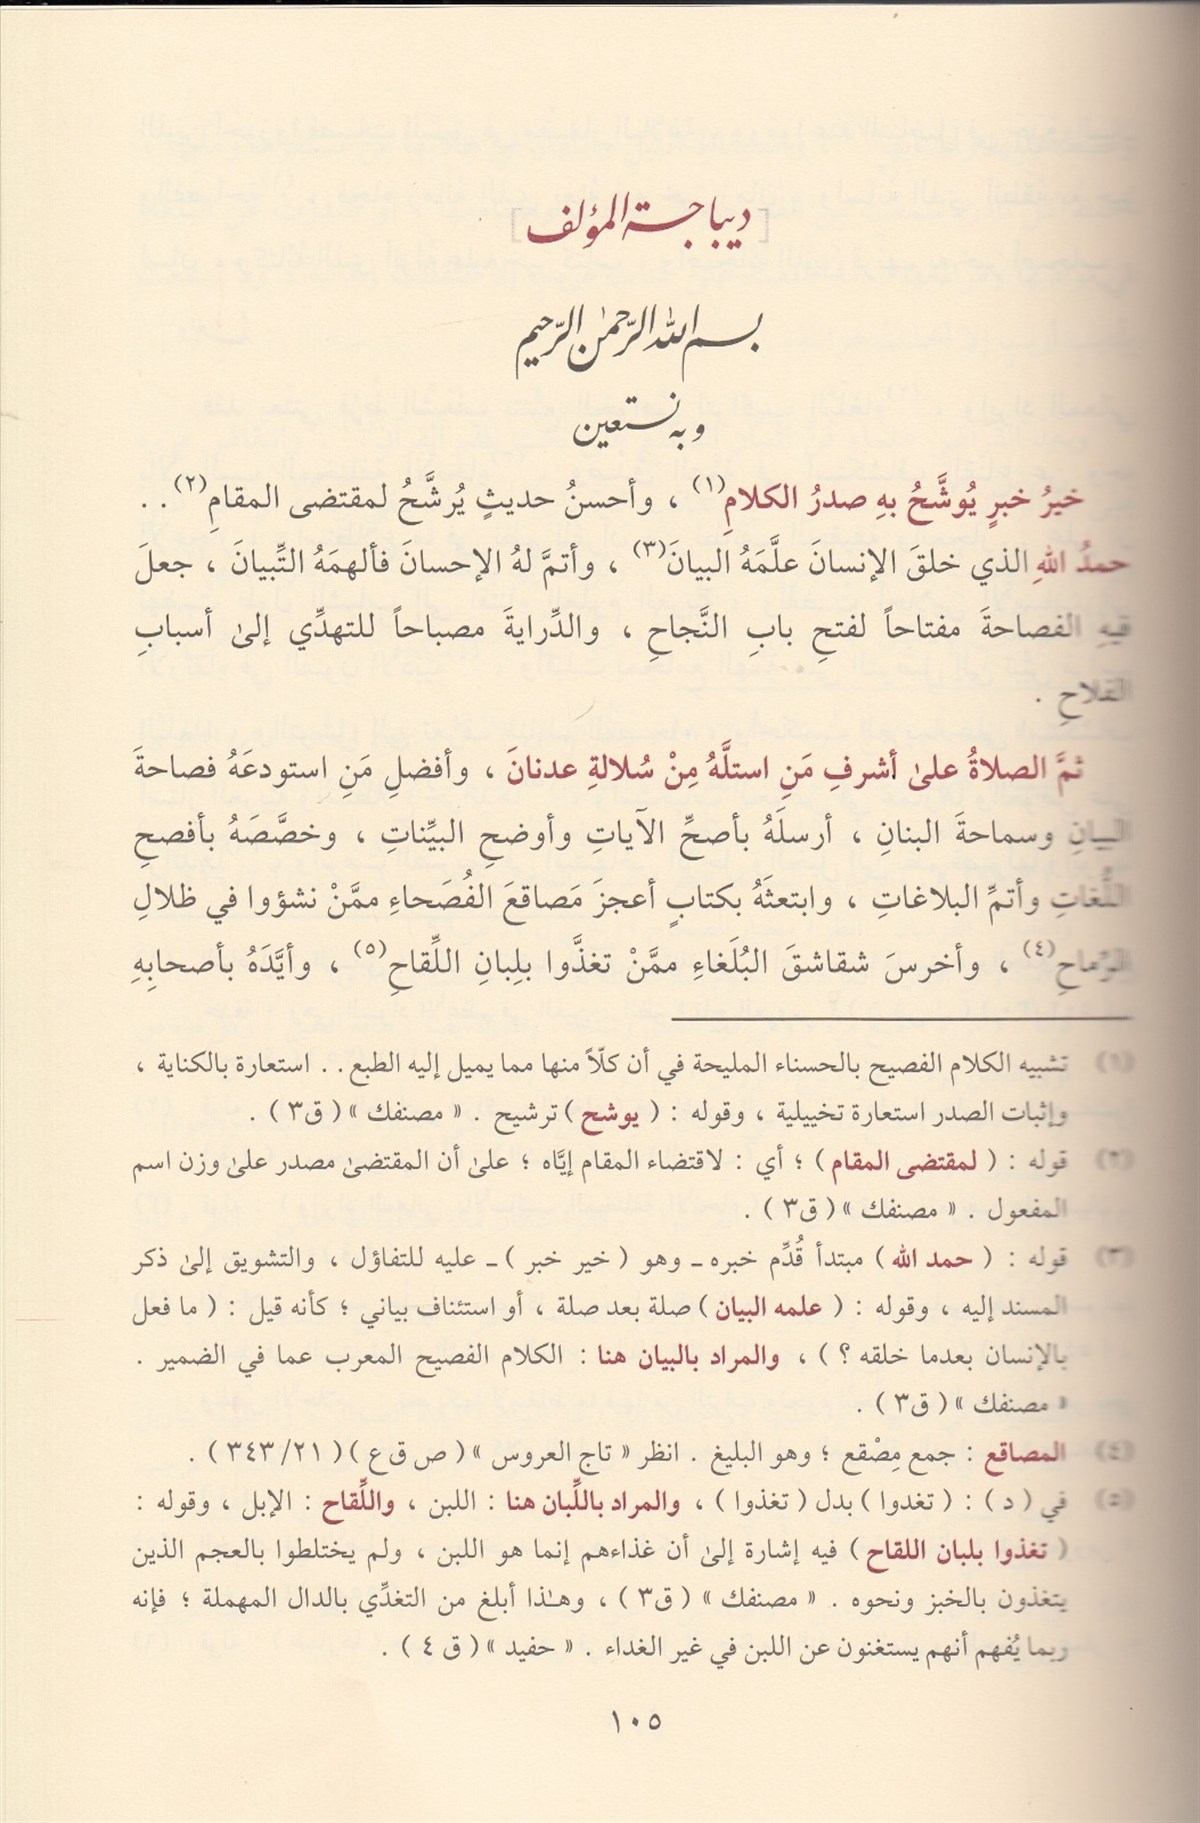 [ ديباجة المؤلف ]
بسم الله الرحمٰن الرحيم
وبه نستعين
خيرُ خبرٍ يُوشَّحُ بهِ صدرُ الكلامِ(١) ، وأحسنُ حديثٍ يُرشَّحُ لمقتضى المقامِ(٢) . .
حمدُ اللهِ الذي خلقَ الإنسانَ علَّمَهُ البيانَ(٣) ، وأتمَّ لهُ الإحسانَ فألهمَهُ التِّبيانَ ، جعلَ
فيهِ الفصاحةَ مفتاحاً لفتحِ بابِ النَّجاحِ ، والدِّرايةَ مصباحاً للتهدِّي إلىٰ أسبابِ
الفلاحِ .
ثمَّ الصلاةُ علىٰ أشرفِ مَنِ استلَّهُ مِنْ سُلالةِ عدنانَ ، وأفضلِ مَنِ استودعَهُ فصاحةَ
البيانِ وسماحةَ البنانِ ، أرسلَهُ بأصحِّ الآياتِ وأوضحِ البيِّناتِ ، وخصَّصَهُ بأفصحِ
اللُّغاتِ وأتمِّ البلاغاتِ ، وابتعثَهُ بكتابٍ أعجزَ مَصاقعَ الفُصَحاءِ ممَّنْ نشؤوا في ظلالِ
الرِّماحِ(٤) ، وأخرسَ شقاشقَ البُلَغاءِ ممَّنْ تغذَّوا بلِبانِ اللِّقاحِ(٥) ، وأيَّدَهُ بأصحابِهِ
(١) تشبيه الكلام الفصيح بالحسناء المليحة في أن كلّاً منها مما يميل إليه الطبع . . استعارة بالكناية ،
وإثبات الصدر استعارة تخييلية ، وقوله : ( يوشح ) ترشيح . « مصنفك » ( ق٣ ) .
(٢) قوله : ( لمقتضى المقام ) ؛ أي : لاقتضاء المقام إيَّاه ؛ علىٰ أن المقتضىٰ مصدر علىٰ وزن اسم
المفعول . « مصنفك » ( ق٣ ) .
(٣) قوله : ( حمد الله ) مبتدأ قُدِّم خبره ـ وهو ( خير خبر ) ـ عليه للتفاؤل ، والتشويق إلىٰ ذكر
المسند إليه ، وقوله : ( علمه البيان ) صلة بعد صلة ، أو استئناف بياني ؛ كأنه قيل : ( ما فعل
بالإنسان بعدما خلقه ؟ ) ، والمراد بالبيان هنا : الكلام الفصيح المعرب عما في الضمير .
« مصنفك » ( ق٣ ) .
(٤) المصاقع : جمع مِصْقع ؛ وهو البليغ . انظر « تاج العروس » ( ص ق ع ) ( ٣٤٣/٢١ ) .
(٥) في ( د ) : ( تغدوا ) بدل ( تغذوا ) ، والمراد باللِّبان هنا : اللبن ، واللِّقاح : الإبل ، وقوله :
( تغذوا بلبان اللقاح ) فيه إشارة إلىٰ أن غذاءهم إنما هو اللبن ، ولم يختلطوا بالعجم الذين
يتغذون بالخبز ونحوه . « مصنفك » ( ق٣ ) ، وهـٰذا أبلغ من التغدِّي بالدال المهملة ؛ فإنه
ربما يُفهم أنهم يستغنون عن اللبن في غير الغداء . « حفيد » ( ق ٤ ) .
١٠٥